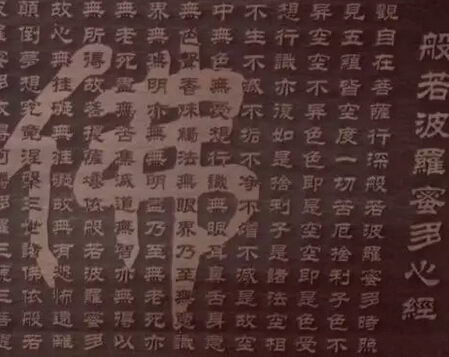 般若波羅蜜多心經
觀自在菩薩行深般若波羅蜜多時照
見五蘊皆空度一切苦厄捨利子色不
異空空不異色色即是空空即是色受
想行識亦復如是捨利子是諸法空相
不生不滅不垢不淨不增不減是故空
中無色無受想行識無眼耳鼻舌身意
無色聲香味觸法無眼界乃至無意識
界無無明亦無無明盡乃至無老死亦
無老死盡無苦集滅道無智亦無得以
無所得故菩提薩埵依般若波羅蜜多
故心無挂礙無挂礙故無有恐怖遠離
顛倒夢想究竟涅槃三世諸佛依般若
佛